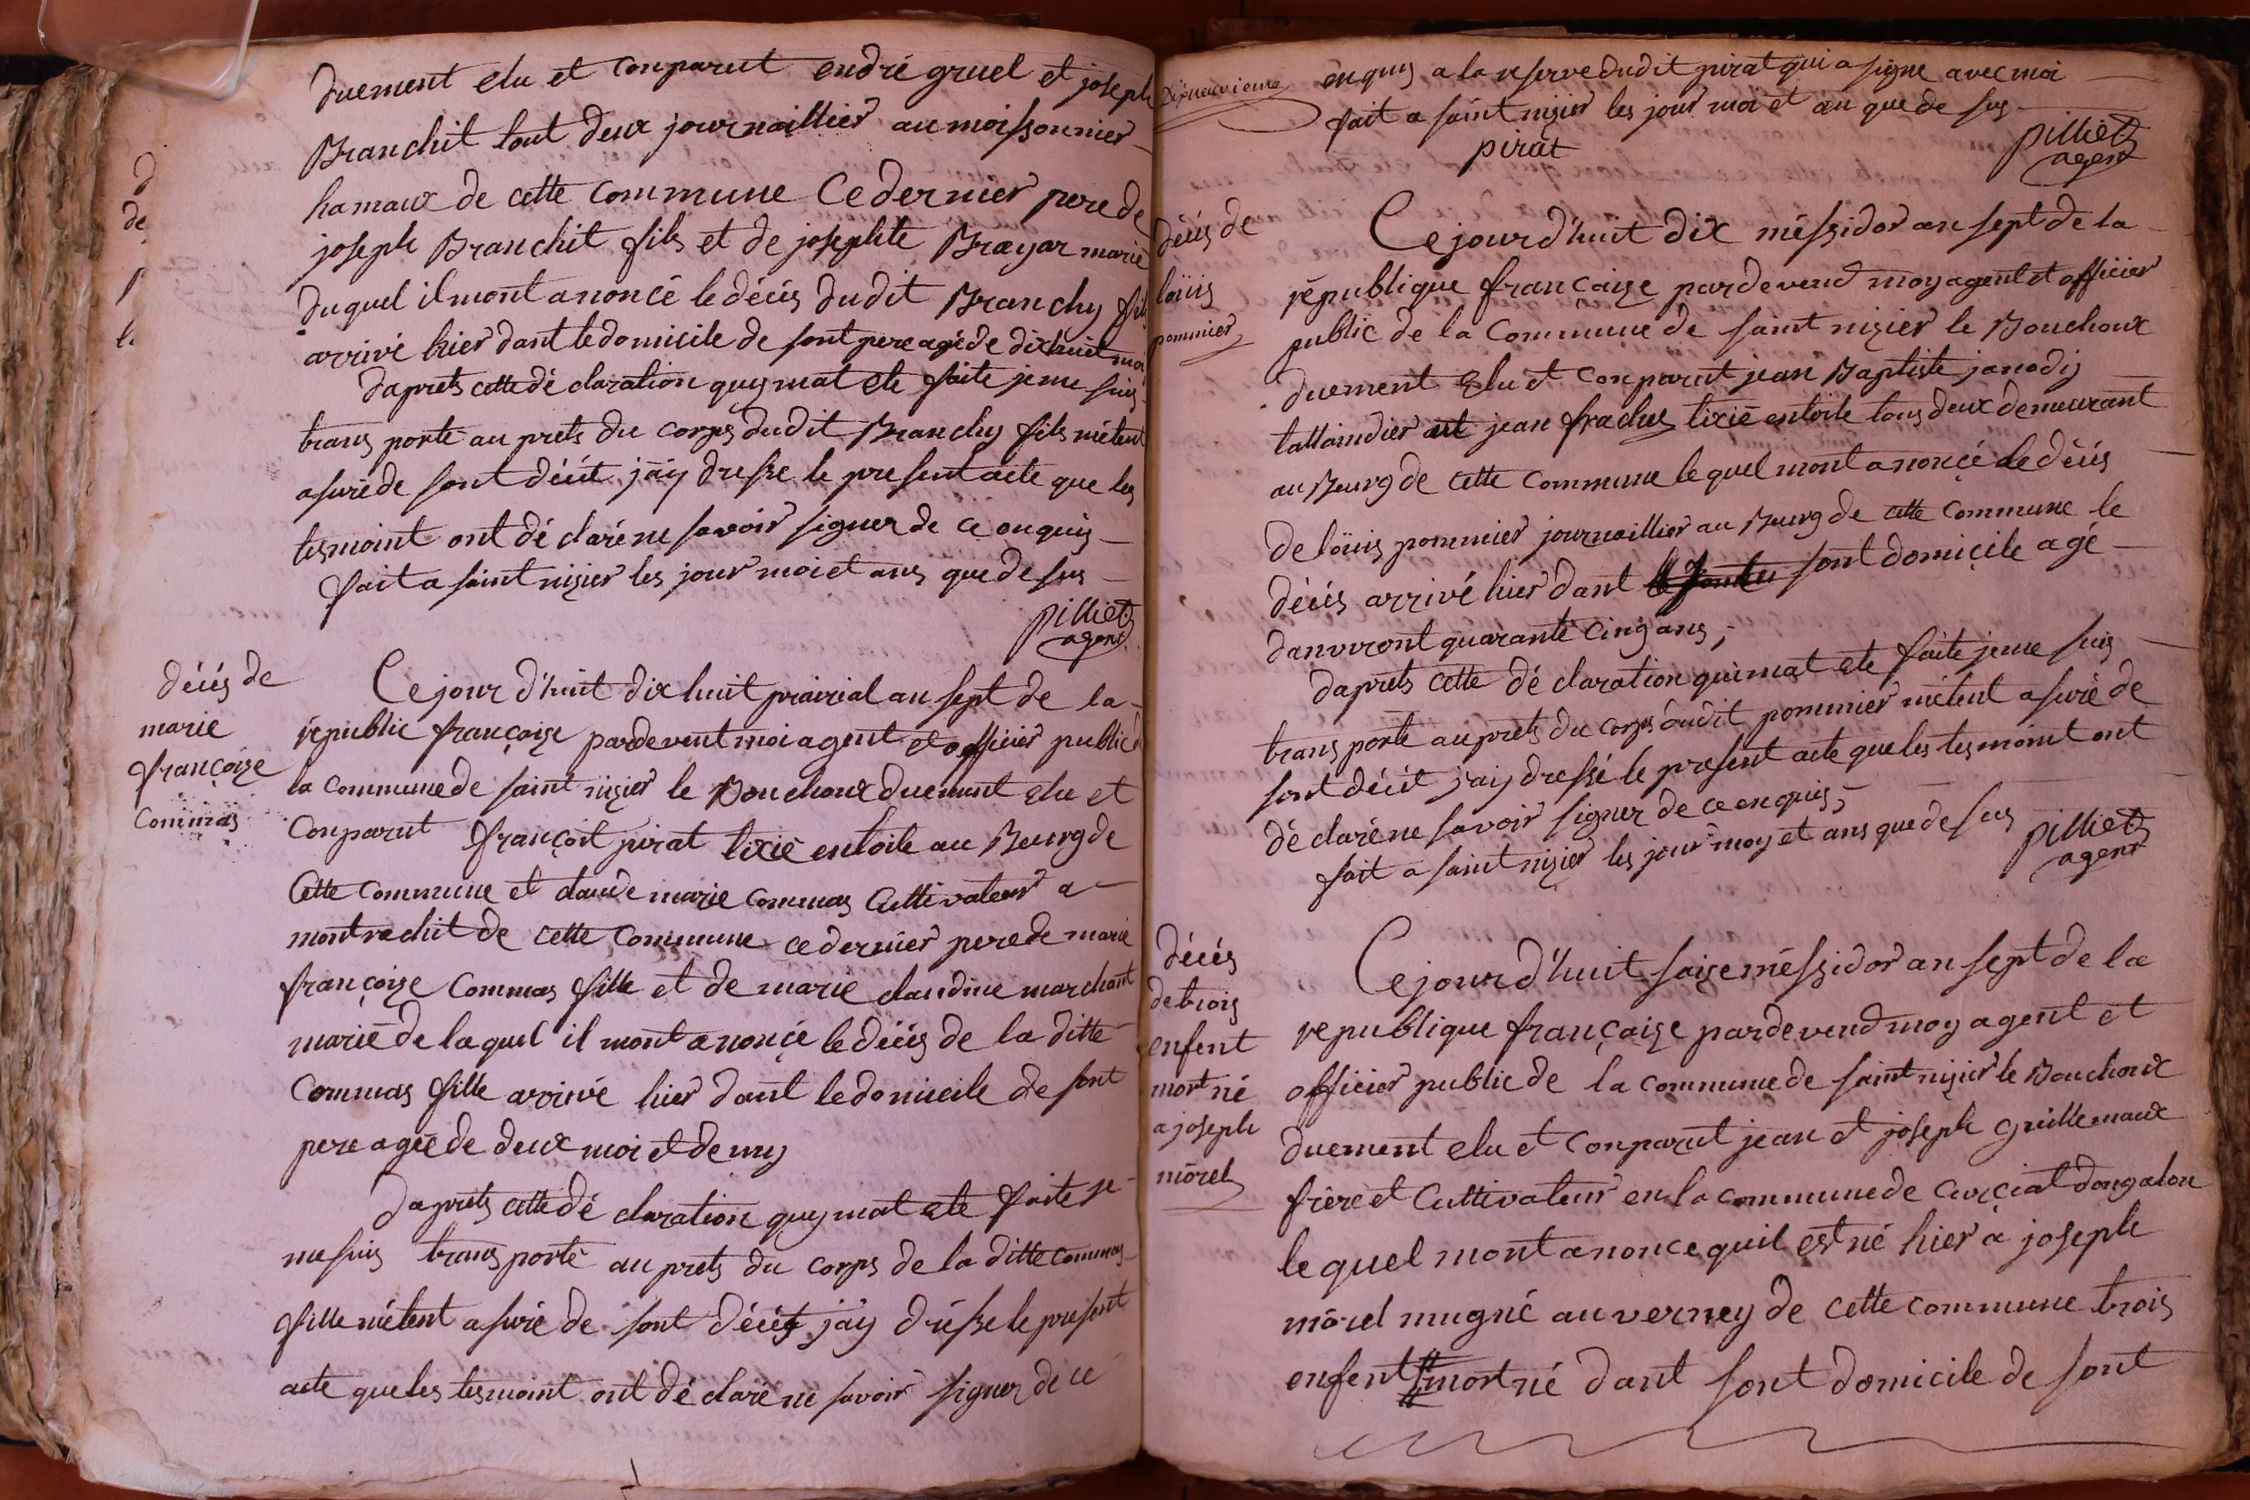 duement elu et conparut endré gruel et joseph
Branchit tout deux journaillier au moissonnier
hamaux de cette commune Ce dernier pere de
joseph Branchit fils et de josephte Brayar marié
duquel il mont anoncé le décés dudit Branchy fils
arrivé hier dant le domicile de sont pere agé de dixhuit moi
daprets cette dé claration quy mat ete faite je me suis
trans porté au prets du corps dudit Branchy fils métent
asuré de sont décét jay dressé le present acte que les
tesmoint ont dé claré ne savoir signer de ce onquis
fait a saint nizier les jour moi et ans que de sus
pilliet
agent
décés de
marie
françoize
Commas
Ce jour d'huit dix huit prairial an sept de la
républic françoize pardevent moi agent et officier public d
la commune de saint nizier le Bouchoux duement elu et
Conparut françoit pirat tixié entoile au Bourg de
Cette commune et claude marie commas Cultivateur a
montrachit de cette commune ce dernier pere de marie
françoize Commas fille et de marie claudine marchant
marié de laquel il mont anonçé le décés de la ditte
Commas fille arrivé hier dant le domicile de sont
pere agée de deux moi et demy
daprets cette dé claration quy mat ete faite je
me suis trans porté au prets du corps de la ditte commas
fille métent asuré de sont décét jay dréssé le present
acte que les tesmoint ont dé claré ne savoir signer de ce
dixneuvieme
enquis a la reserve dudit pirat qui a signe avec moi
fait a saint nizier les jour moi et an que de sus
pirat
pilliet
agent
décés de
loüis
pommier
Ce jour d'huit dix méssidor an sept de la
république françaize pardevend moy agent et officier
public de la Commune de saint nizier le Bouchoux
duement elu et conparut jean Baptiste janody
taillandier et jean frachet tixié entoile tous deux demeurant
au Bourg de cette commune lequel mont anonçé le décés
de loüis pommier journaillier au Bourg de cette commune le
décés arrivé hier dant sont domicile agé
danvront quarante cinq ans ;
daprets cette dé claration qui mat ete faite je me suis
trans porté au prets du corps dudit pommier métent asuré de
sont décét jay dressé le present acte que les tesmoint ont
dé claré ne savoir signer de ce enquis ;
fait a saint nizier les jour moy et ans que de sus
pilliet
agent
décés
de trois
enfent
mort né
a joseph
mörel
Ce jour d'huit saize méssidor an sept de la
republique françaize pardevend moy agent et
officier public de la commune de saint nizier le Bouchoux
duement elu et conparut jean et joseph guillemaux
frère et Cultivateur en la commune de curciat dongalon
lequel mont anonce quil est né hier a joseph
mörel mugné au verney de cette commune trois
enfent mort né dant sont domicile de sont